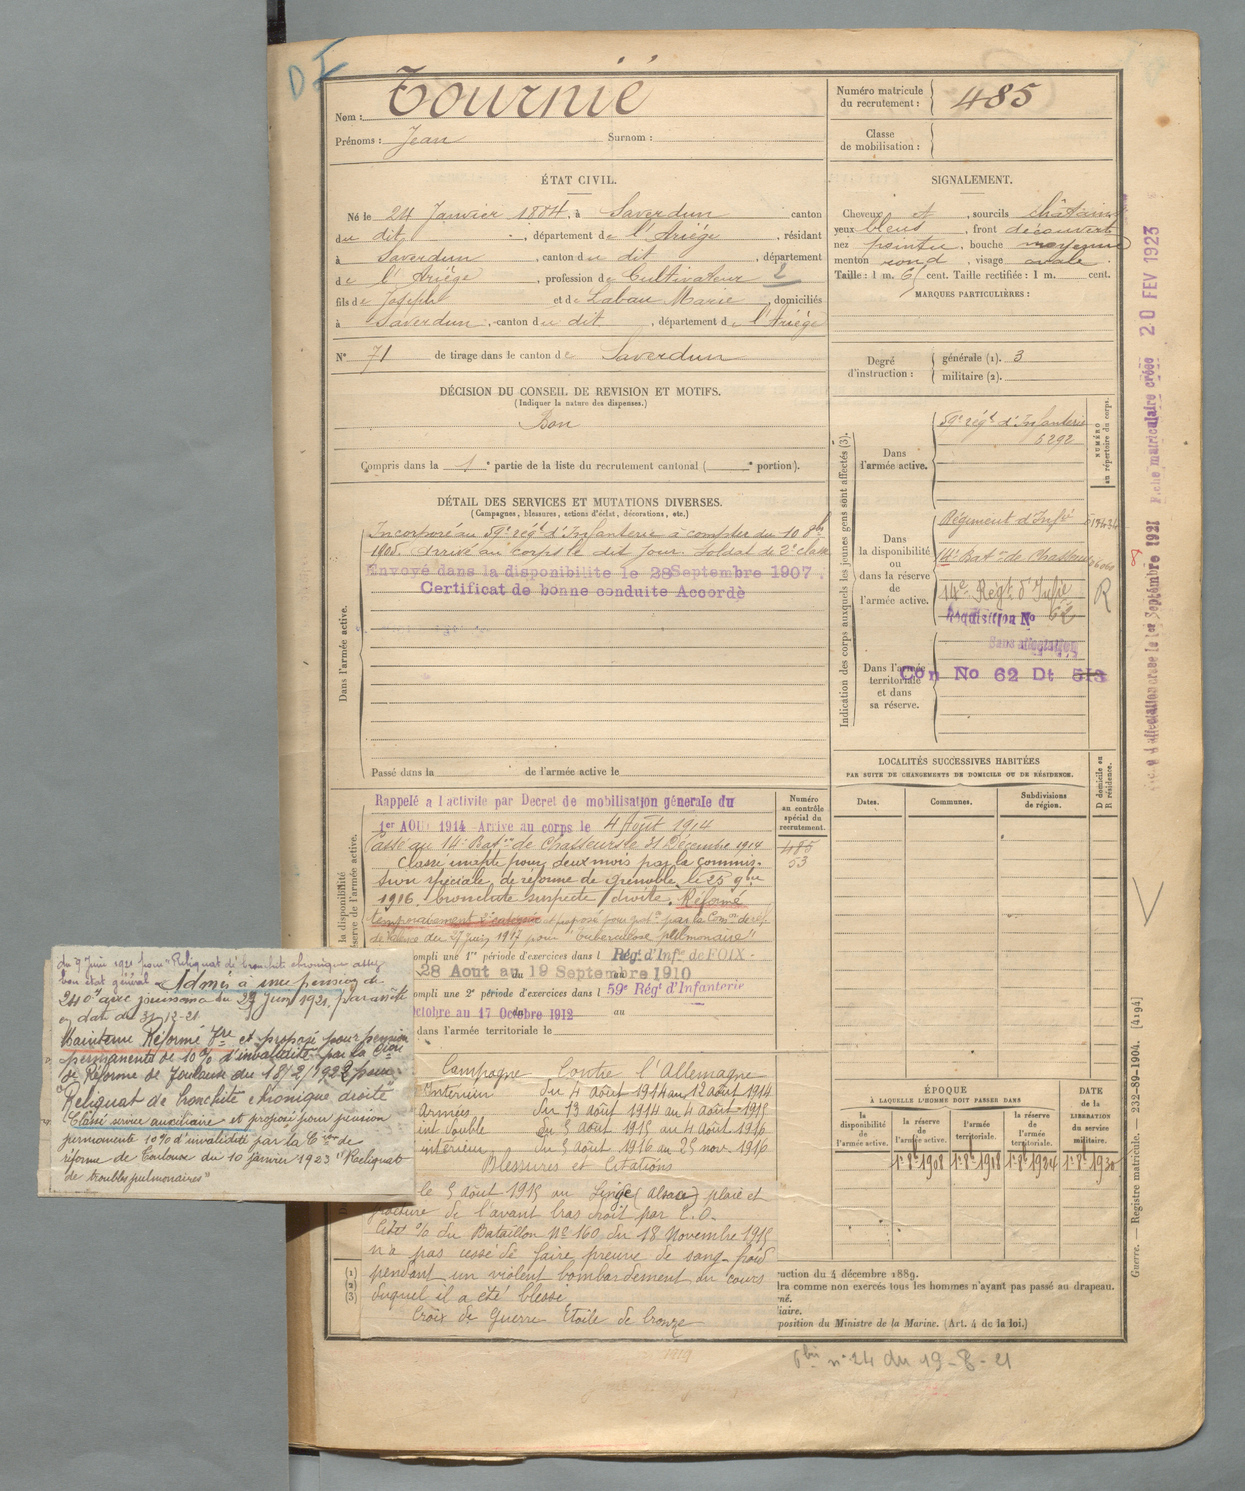 Nom : Tournié
Prénoms : Jean Surnom :
Numéro matricule du recrutement : 485
Classe de mobilisation :
ÉTAT CIVIL.
Né le 24 Janvier 1884, à Saverdun canton
du dit, département de l'Ariège, résidant
à Saverdun, canton du dit, département
de l'Ariège, profession de Cultivateur 2
fils de Joseph et de Labau Marie, domiciliés
à Saverdun, canton du dit, département de l'Ariège
N° 71 de tirage dans le canton de Saverdun
SIGNALEMENT.
Cheveux et, sourcils châtains
yeux bleus, front découvert
nez pointu, bouche moyenne
menton rond, visage ovale.
Taille : 1 m. 65 cent. Taille rectifiée : 1 m. cent.
MARQUES PARTICULIÈRES :
Degré d'instruction : générale (1). 3
militaire (2).
DÉCISION DU CONSEIL DE REVISION ET MOTIFS.
(Indiquer la nature des dispenses.)
Bon
Compris dans la 1e partie de la liste du recrutement cantonal ( e portion).
DÉTAIL DES SERVICES ET MUTATIONS DIVERSES.
(Campagnes, blessures, actions d'éclat, décorations, etc.)
Dans l'armée active.
Incorporé au 59e régt d'Infanterie à compter du 10 8bre
1905. Arrivé au corps le dit jour. Soldat de 2e classe
Envoyé dans la disponibilite le 28 Septembre 1907.
Certificat de bonne conduite Accordé
Passé dans la de l'armée active le
Indication des corps auxquels les jeunes gens sont affectés (3).
NUMÉRO au répertoire du corps.
Dans l'armée active.
59e régt d'Infanterie
6292
Dans la disponibilité ou dans la réserve de l'armée active.
Régiment d'Infie
14e Baton de Chasseurs
14e Régt d'Infie R
Réquisition No 62
Sans affectation
Dans l'armée territoriale et dans sa réserve.
Con No 62 Dt 513
LOCALITÉS SUCCESSIVES HABITÉES
PAR SUITE DE CHANGEMENTS DE DOMICILE OU DE RÉSIDENCE.
Dates. Communes. Subdivisions de région. D domicile ou R résidence.
la disponibilité
réserve de l'armée active.
Numéro au contrôle spécial du recrutement.
485
53
Rappelé a l activite par Decret de mobilisation générale du
1er AOU 1914 Arrive au corps le 4 Août 1914
Passé au 14e Baton de Chasseurs le 21 Décembre 1914
Classé inapte pour deux mois par la commis-
sion spéciale de réforme de Grenoble le 25 9bre
1916. bronchite suspecte droite. Réformé
temporairement 2e catégorie et proposé pour grat. par la Comon de réf.
de Valence du 27 juin 1917 pour "Tuberculose pulmonaire"
ompli une 1re période d'exercices dans l Rég. d'Inf. de FOIX
28 Aout au 19 Septembre 1910
ompli une 2e période d'exercices dans l 59e Rég' d'Infanterie
ctobre au 17 Octobre 1912 au
dans l'armée territoriale le
du 9 Juin 1921 pour "Reliquat de bronchite chronique assez
bon état général" Admis à une pension de
240f avec jouissance du 27 Juin 1921. par arrêté
en date du 31-12-21
Maintenu Réformé 1re et proposé pour pension
permanente de 10% d'invalidité par la Cion
de Réforme de Toulouse du 18/2/1922 pour
Reliquat de bronchite chronique droite"
Classé service auxiliaire et proposé pour pension
permanente 10% d'invalidité par la Con de
réforme de Toulouse du 10 janvier 1923 "Reliquat
de troubles pulmonaires"
Campagne Contre l'Allemagne
Intérieur du 4 août 1914 au 12 août 1914
Armées du 13 août 1914 au 4 août 1915
int double du 5 août 1915 au 4 août 1916
intérieur du 5 août 1916 au 25 nov. 1916
Blessures et Citations
le 5 août 1915 au Linge (Alsace) plaie et
fracture de l'avant bras droit par E.O.
Cité % du Bataillon No 160 du 18 Novembre 1915
n'a pas cessé de faire preuve de sang-froid
pendant un violent bombardement au cours
duquel il a été blessé
Croix de Guerre Etoile de bronze
ÉPOQUE
À LAQUELLE L'HOMME DOIT PASSER DANS
la disponibilité de l'armée active. la réserve de l'armée active. l'armée territoriale. la réserve de l'armée territoriale.
DATE de la LIBÉRATION du service militaire.
1er 8bre 1908 1er 8bre 1918 1er 8bre 1924 1er 8bre 1930
(1) uction du 4 décembre 1889.
(2) dra comme non exercés tous les hommes n'ayant pas passé au drapeau.
(3)
né.
iaire.
position du Ministre de la Marine. (Art. 4 de la loi.)
6bis n° 24 du 19-8-21
Fiche matriculaire créée 20 FEV 1923
d'affectation le 1er Septembre 1921
Guerre. — Registre matricule. — 232-89-1904. [4194]